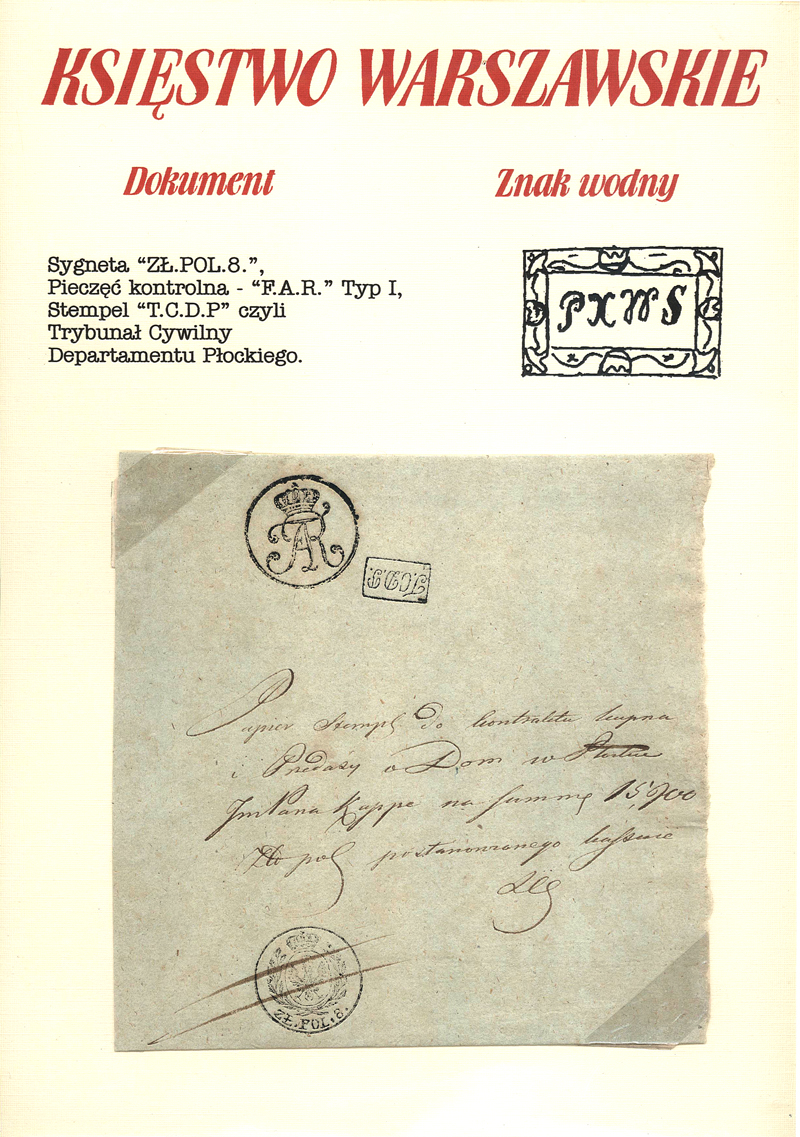 KSIĘSTWO WARSZAWSKIE
Dokument
Znak wodny
Sygneta “ZŁ.POL.8.”,
Pieczęć kontrolna - “F.A.R.” Typ I,
Stempel “T.C.D.P” czyli
Trybunał Cywilny
Departamentu Płockiego.
PXWS
FAR
T.C.D.P.
Papier Stempl do kontraktu kupna
i Predaży o Dom w
JmPana Kappe na summę 15,900
Zło pol postanowionego
ZŁ.POL.8.